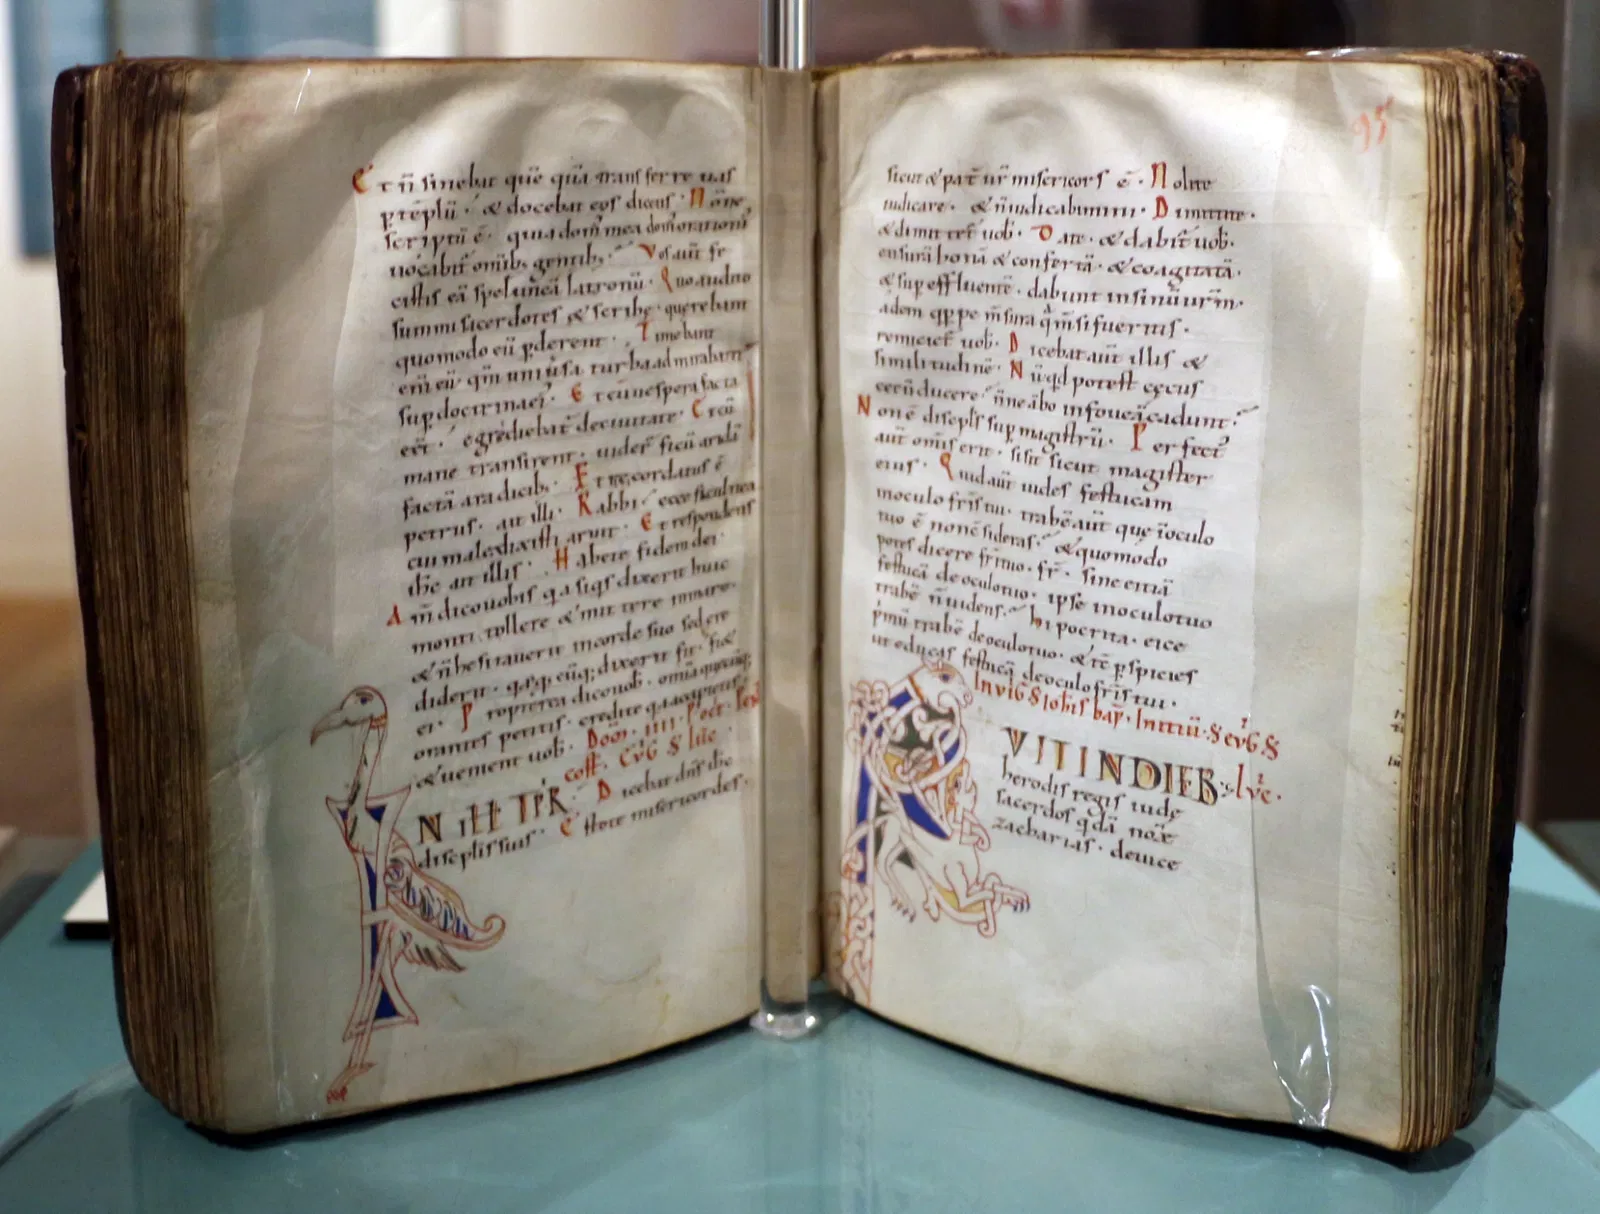 Et n̄ sinebat quē quā trans ferre uas
p tēplū · & docebat eos dicens · Nōne
scriptū ē · quia dom̄ mea dom̄ orationū
uocabit̄ omīb; gentib; · Vos aūt fe
cistis eā speluncā latronū · Quo audito
summi sacerdotes & scribę · querebant
quomodo eū pderent · Timebant
em̄ eū · qm̄ uniūsa turba admirabant̄
sup doctrinaei · Et cū uespera facta
eēt · egrediebat̄ deciuitate · Et cū
mane transirent · uider̄ ficū aridā
factā aradicib; · Et recordatus ē
petrus · ait illi · Rabbi · ecce ficulnea
cui maledixisti aruit · Et respondens
ih̄c ait illis · Habete fidem dei ·
Am̄ dico uobis q̄a siq̄s dixerit huic
monti · tollere & mittere inmare ·
& n̄ hesitauerit incorde suo sed cre
diderit · q̄a qcūq; dixerit fiat · fi&
ei · Propterea dico uob̄ · omīa quęcūq;
orantes petitis · credite q̄a accipietis
& euenient uob̄ · Dom̄ · IIII · Post · Pen
cost̄ · Euḡ S̄ luc̄
IN ILL TPR · Dicebat dn̄s ih̄c
discplis suis · Estote misericordes ·
95
sicut & pat̄ ur̄ misericors ē · Nolite
iudicare · & n̄ iudicabimini · Dimittite ·
& dimittet̄ uob̄ · Date · & dabit̄ uob̄ ·
ensurā bonā & confertā · & coagitatā ·
& sup effluentē · dabunt insinū urm̄ ·
adem qppe m̄sura q̄ m̄si fueritis ·
remitiet̄ uob̄ · Dicebat aūt illis &
similitudinē · Nūqd potest cęcus
cecū ducere · n̄ne ābo infoueā cadunt ·
Non ē discpls sup magistrū · Perfect̄
aūt omīs erit · si sit sicut magister
eius · Quid aūt uides festucam
inoculo fr̄is tui · trabē aūt que ī oculo
tuo ē non c̄sideras · & quomodo
potes dicere fr̄i tuo · fr̄ · sine eitiā
festucā de oculo tuo · ipse inoculo tuo
trabē n̄ uidens · hipocrita · eice
pmū trabē deoculo tuo · & tc̄ pspicies
ut educas festucā deoculo fr̄is tui ·
In uig̃ S̄ ioh̄is bap̄ · Initiū · S̄ euḡ S̄
VIT IN DIEB; luc̄ ·
herodis regis iudę
sacerdos qdā noīe
zacharias · de uice